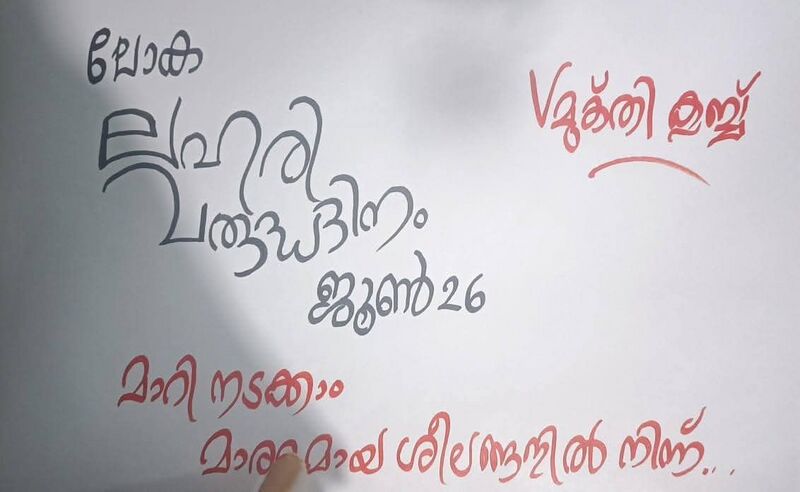 ലോക
ലഹരി
വിരുദ്ധദിനം
ജൂൺ 26
Vമുക്തി ക്ലബ്ബ്
മാറി നടക്കാം
മാരകമായ ശീലങ്ങളിൽ നിന്ന്...